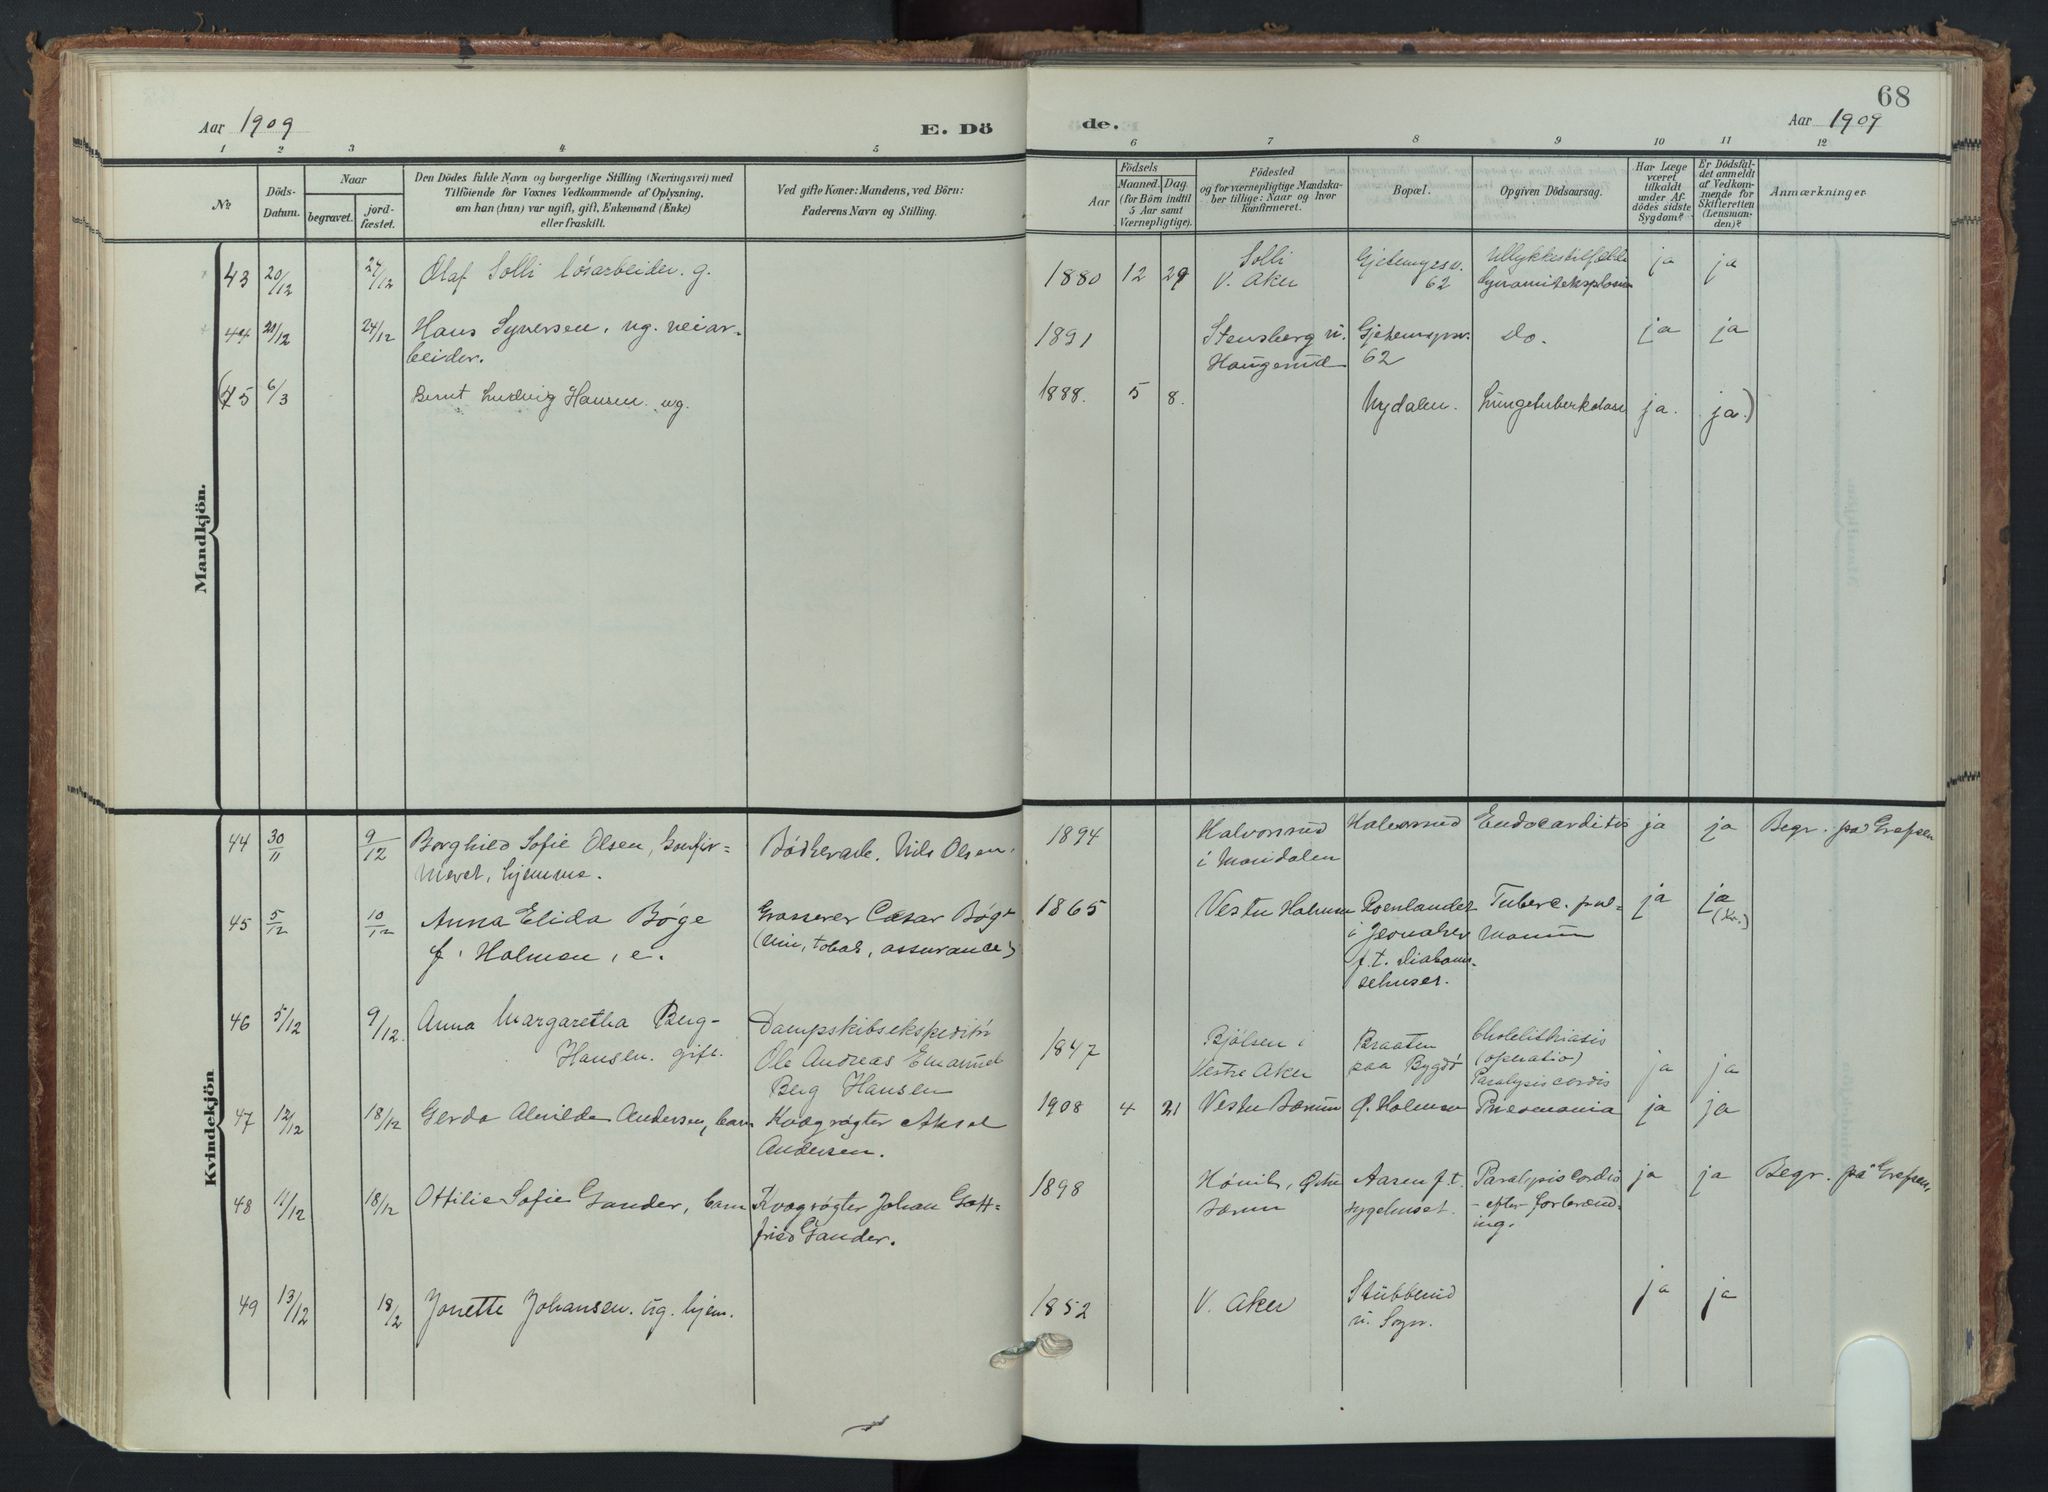 68
Aar 1909 E. Dö
de. Aar 1909
1 2 3 4 5
6 7 8 9 10 11 12
No
Döds-
Datum.
Naar
begravet.
jord-
fæstet.
Den Dödes fulde Navn og borgerlige Stilling (Næringsvei) med
Tilföiende for Voxnes Vedkommende af Oplysning,
om han (hun) var ugift, gift, Enkemand (Enke)
eller fraskilt.
Ved gifte Koner: Mandens, ved Börn:
Faderens Navn og Stilling.
Födsels
Aar
Maaned.
Dag
(for Börn indtil
5 Aar samt
Værnepligtige).
Födested
og for værnepligtige Mandska-
ber tillige: Naar og hvor
konfirmeret.
Bopæl.
Opgiven Dödsaarsag.
Har Læge
været
tilkaldt
under Af-
dödes sidste
Sygdom?
Er Dödsfal-
det anmeldt
af Vedkom-
mende for
Skifteretten
(Lensman-
den)?
Anmærkninger
Mandkjön.
43 20/12 24/12 Olaf Solli løsarbeider. g.
1880 12 29 Solli
V. Aker
62
Ulykkestilfælde
dynamiteksplosion
ja ja
44 20/12 24/12 Hans Syversen, ug. veiar-
beider.
1891 Stensberg u.
Haugerud
62
Do. ja ja
(45 6/3 Bernt Ludvig Hansen ug.
1888. 5 8. Nydalen. Lungetuberkulose ja. ja.)
Kvindekjön
44 30/11 9/12 Borghild Sofie Olsen, konfir-
meret, hjemme.
Bødkerarb. Nils Olsen.
1894 Halvorsrud
i Maridalen
Halvorsrud Endocarditis ja ja Begr. på Grefsen
45 5/12 10/12 Anna Elida Bøge
f. Holmen, e.
Grosserer Cæsar Bøge
(vin, tobak, assurance)
1865 Vestre Holmen Roenlander
i Jevnaker
f.t. diakonis-
sehuset.
Tuberc. pul-
monum
ja ja
(Kr.)
46 5/12 9/12. Anna Margaretha Berg-
Hansen. gift.
Dampskibsekspeditør
Ole Andreas Emanuel
Berg Hansen
1847 Bjølsen i
Vestre Aker
Braaten
paa Bygdø
Cholelithiasis
(operatio)
Paralysis cordis
ja ja
47 12/12 18/12 Gerda Alvilde Andersen, barn
Kvægrøgter Aksel
Andersen.
1908 4 21 Vestre Bærum Ø. Holmen Pneumonia ja ja
48 11/12 18/12 Ottilie Sofie Gander, barn
Kvægrøgter Johan Gott-
fried Gander.
1898 Østre
Bærum
Aasen f.t.
sygehuset.
Paralysis cordis
- efter forbrænd-
ing.
ja ja Begr. på Grefsen.
49 13/12 18/12 Jonette Johansen. ug. hjem.
1852 V. Aker Stubberud
u. Sogn.
ja ja